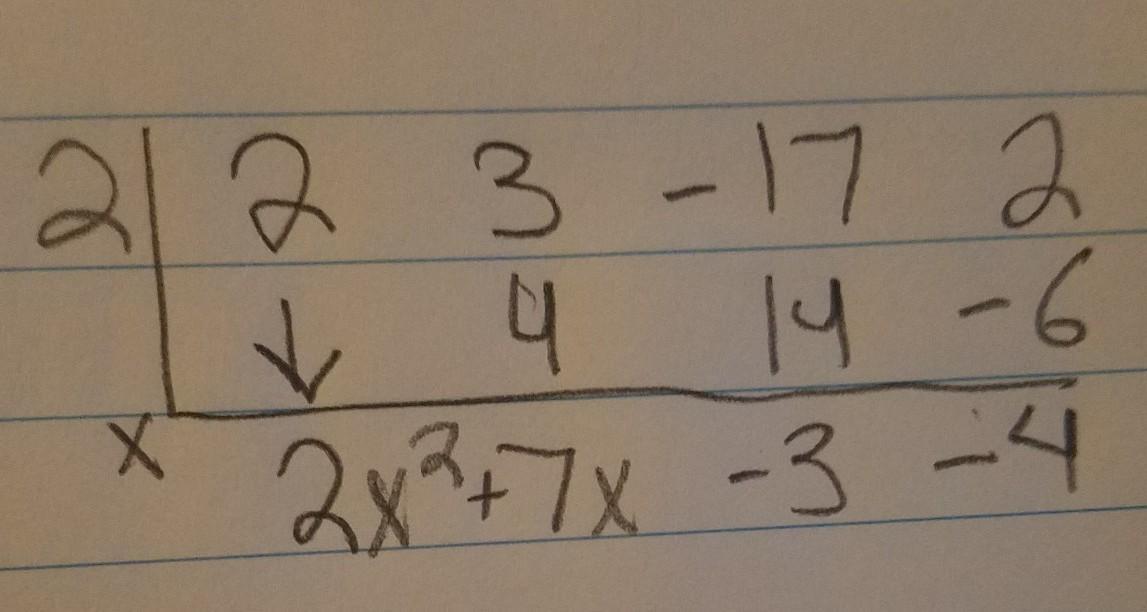 2 | 2 3 -17 2
↓ 4 14 -6
x 2x²+7x -3 -4